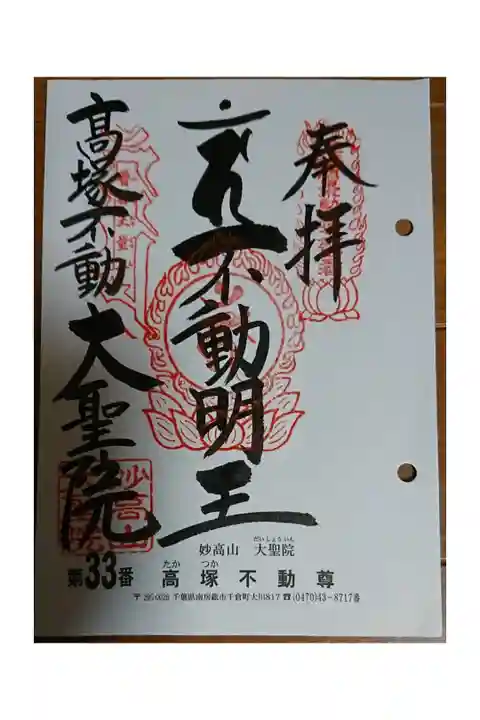 奉拝
不動明王
高塚不動 大聖院
だいしょういん
妙高山 大聖院
たか つか
第33番 高塚不動尊
〒295-0028 千葉県南房総市千倉町大川817 ☎(0470)43-8717番
妙高山